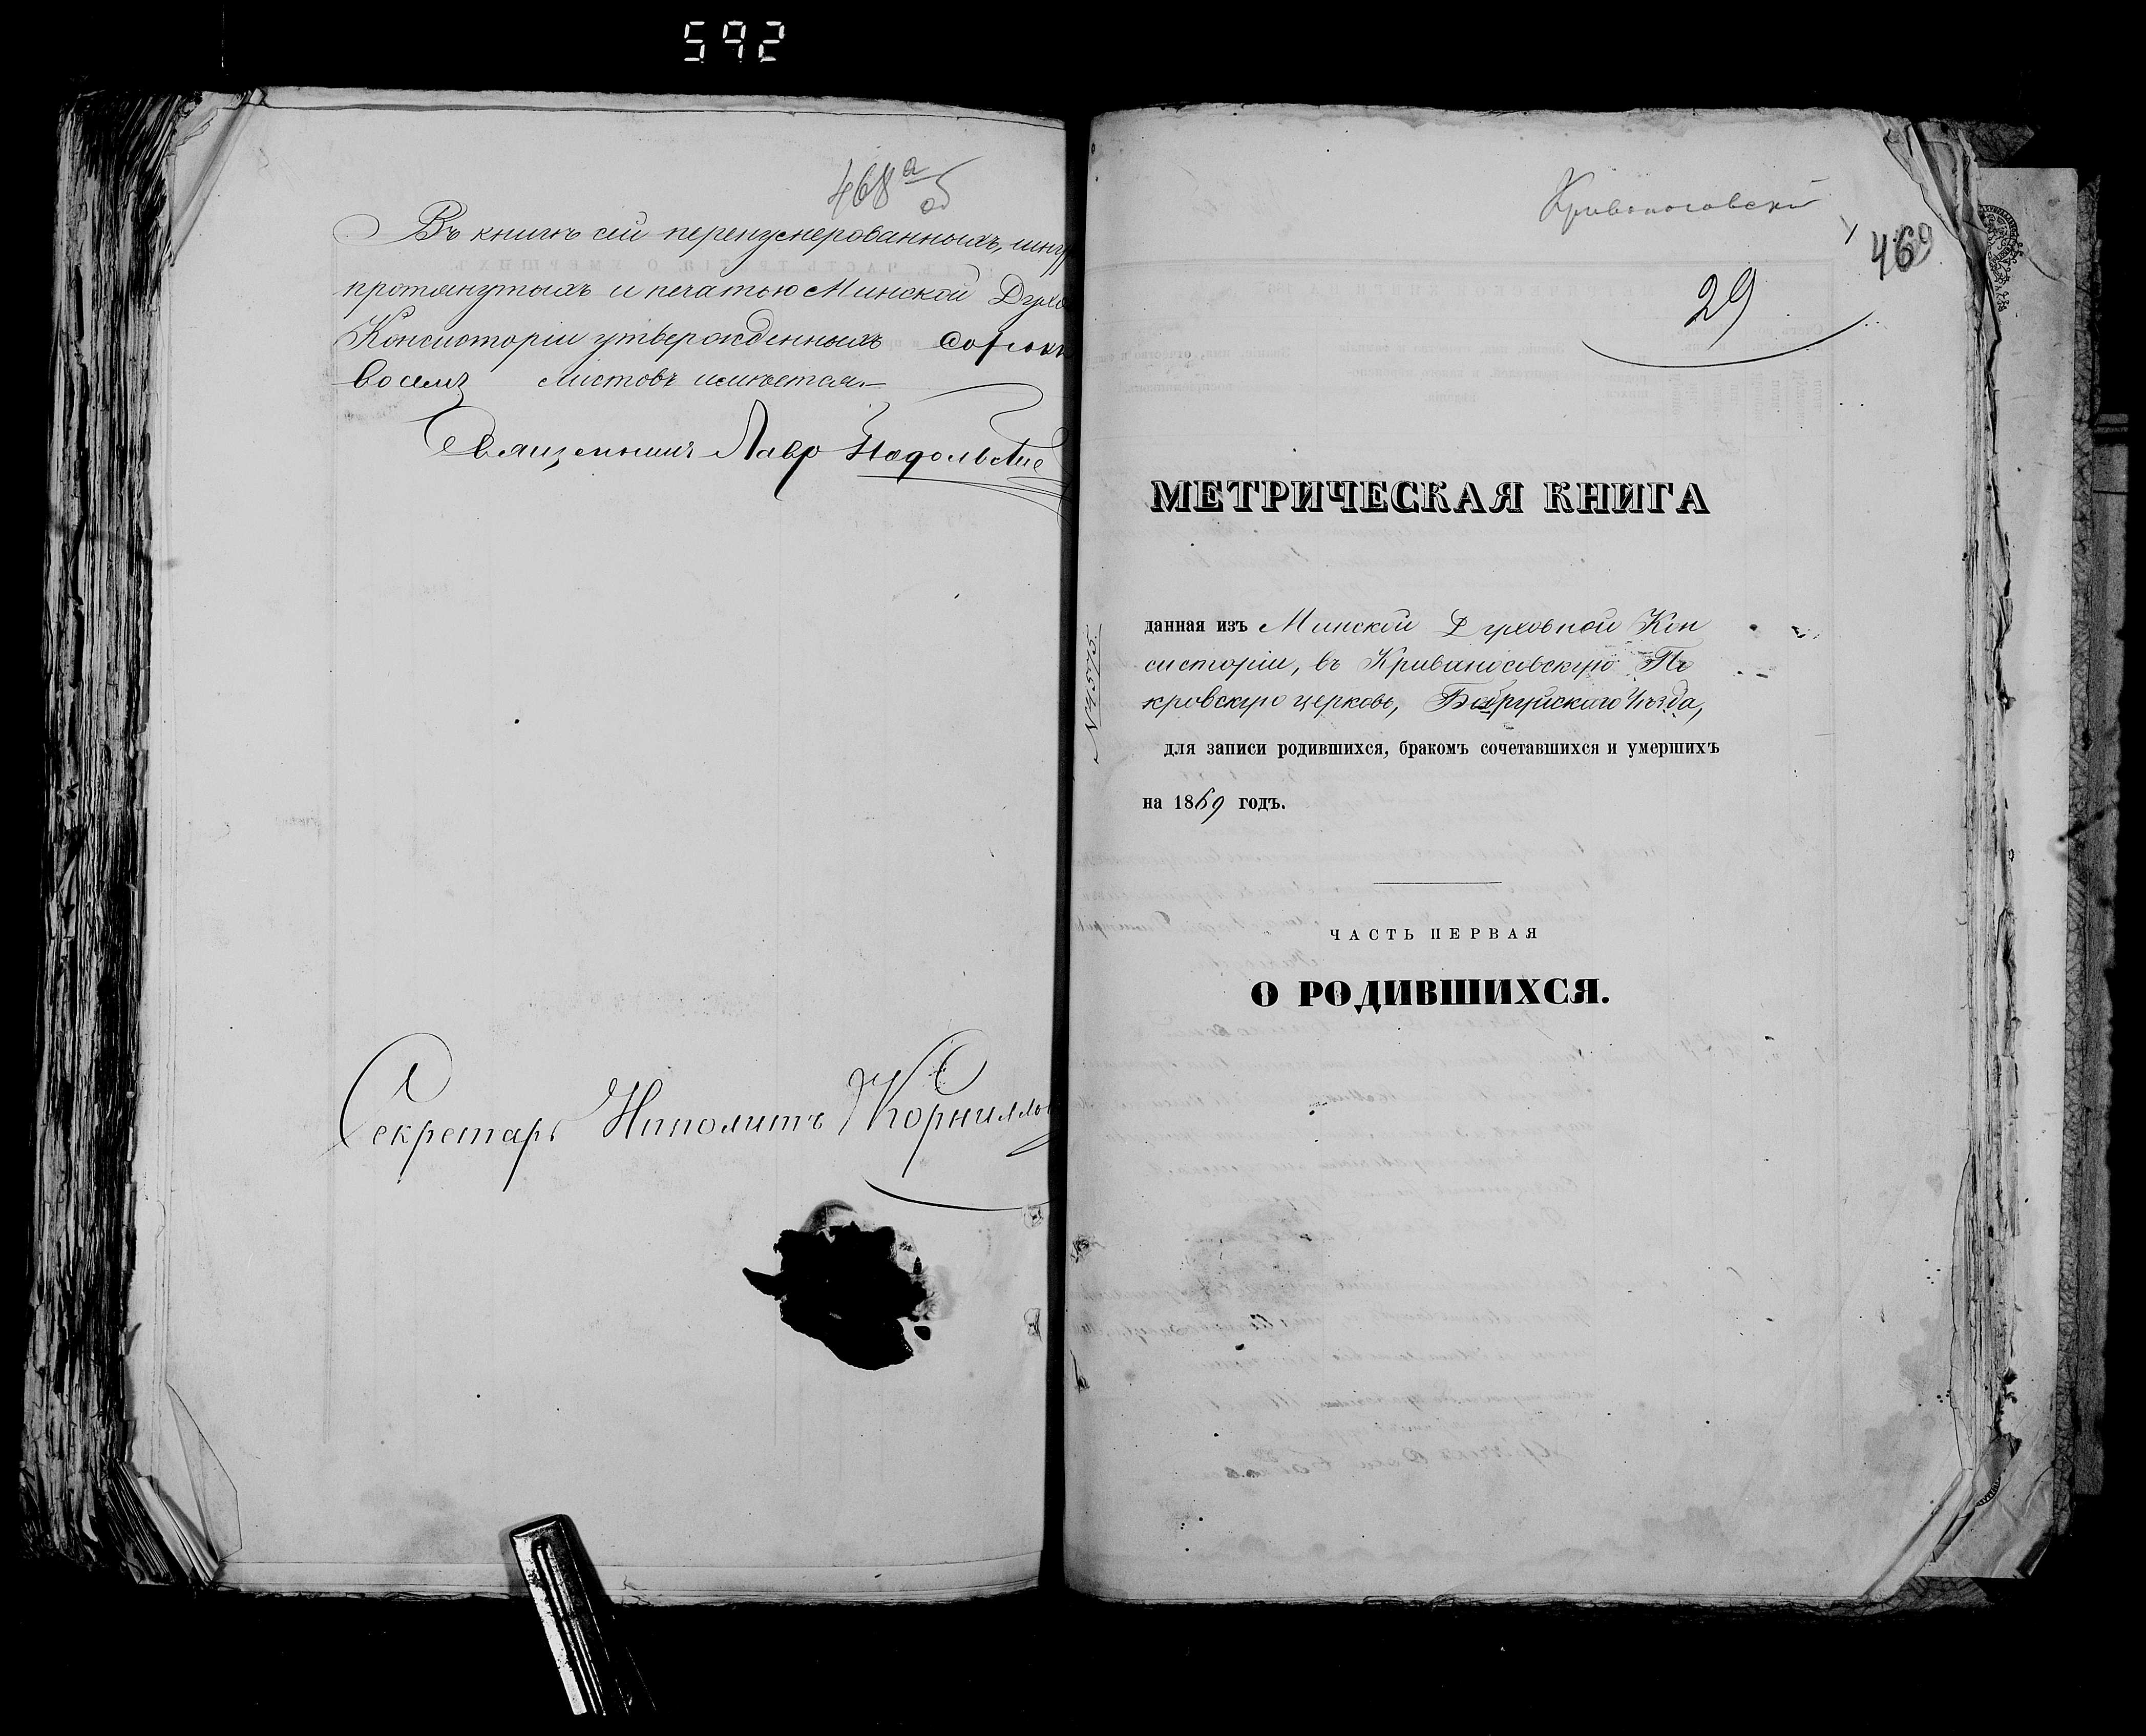 592
468а об
Въ книгѣ сей перенумерованныхъ, шнур
протянутыхъ и печатью Минской Духо
Консисторіи утвержденныхъ сорокъ
восемъ листовъ имѣется.
Священникъ Лавр
Секретарь Ипполитъ Корнилло
469
29
МЕТРИЧЕСКАЯ КНИГА
№4575.
данная изъ Минской Духовной Кон
систоріи, въ Кривоносовскую По
кровскую церковь, Бобруйскаго Уѣзда,
для записи родившихся, бракомъ сочетавшихся и умершихъ
на 1869 годъ.
ЧАСТЬ ПЕРВАЯ
О РОДИВШИХСЯ.